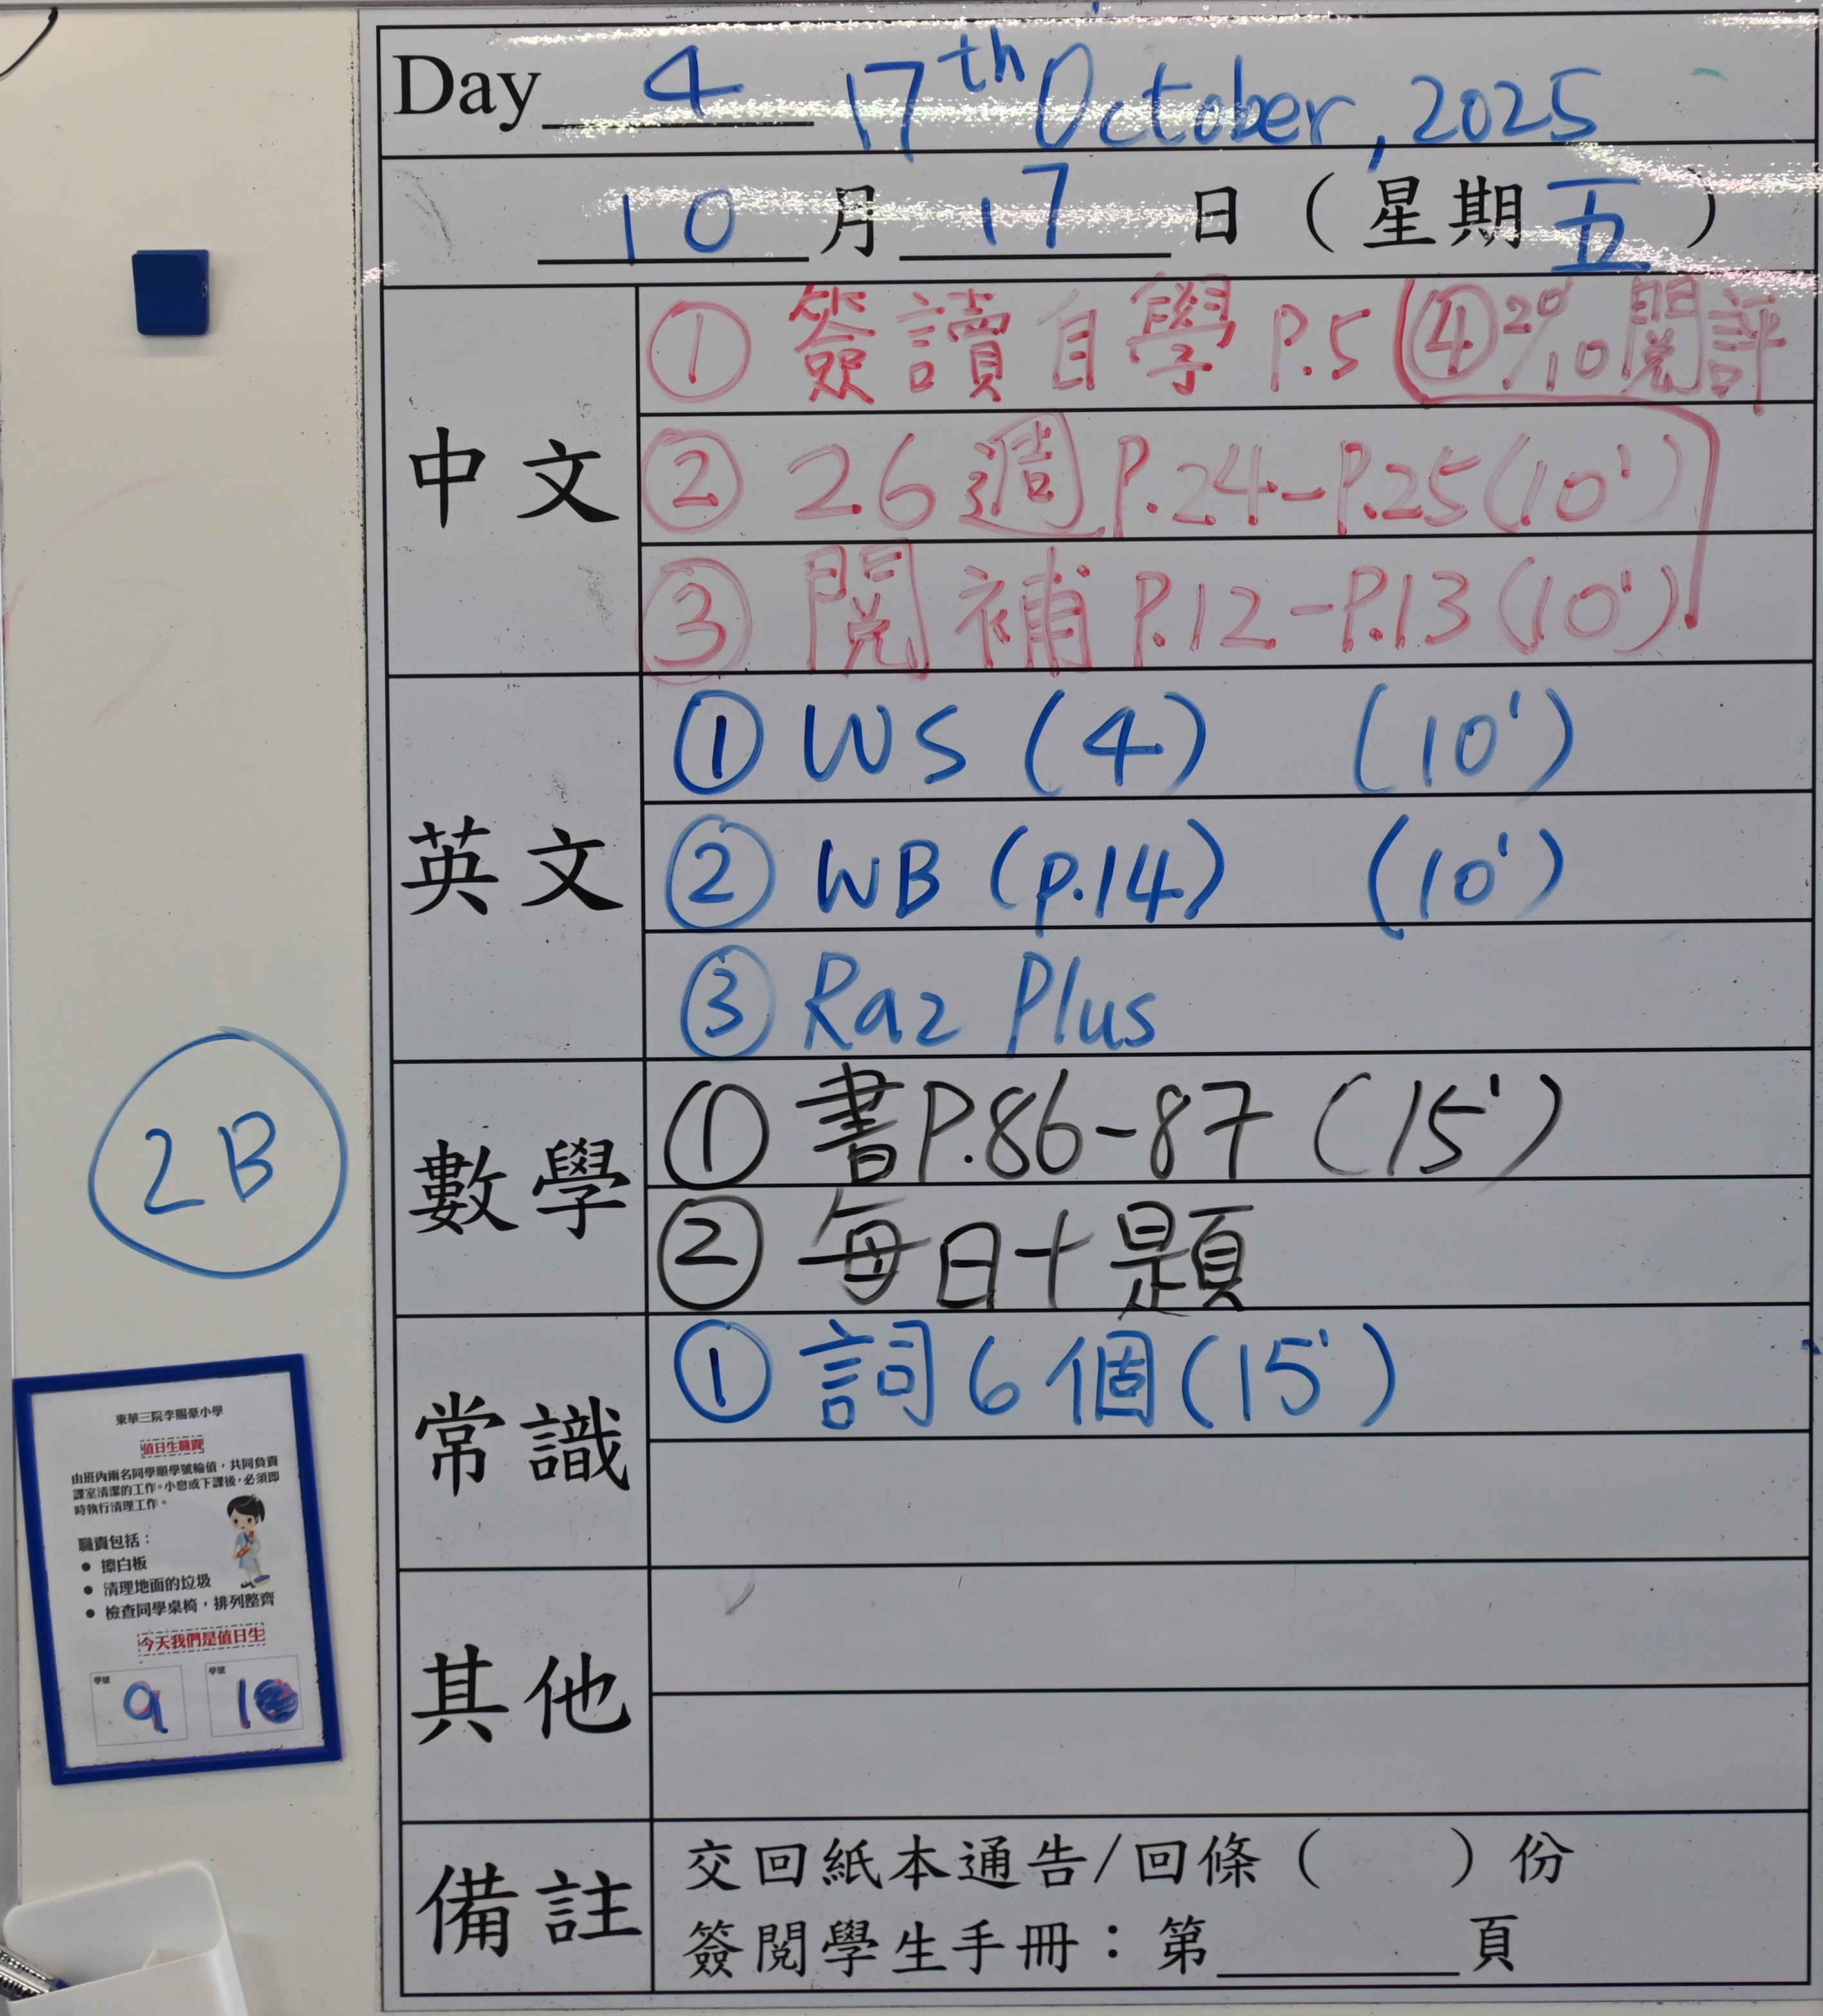 Day 4 17th October, 2025
10月17日（星期五）
中文
① 簽讀自學 P.5 ④ 20/10 閱評
② 26週 P.24-P.25 (10')
③ 閱補 P.12-P.13 (10')
英文
① WS (4) (10')
② WB (p.14) (10')
③ Raz Plus
數學
① 書P.86-87 (15')
② 每日十題
常識
① 詞6個 (15')
其他
備註
交回紙本通告/回條（ ）份
簽閱學生手冊：第____頁
2B
東華三院李賜豪小學
值日生職責
由班內兩名同學順學號輪值，共同負責
課室清潔的工作。小息或下課後，必須即
時執行清理工作。
職責包括：
● 擦白板
● 清理地面的垃圾
● 檢查同學桌椅，排列整齊
今天我們是值日生
學號 學號
9 10